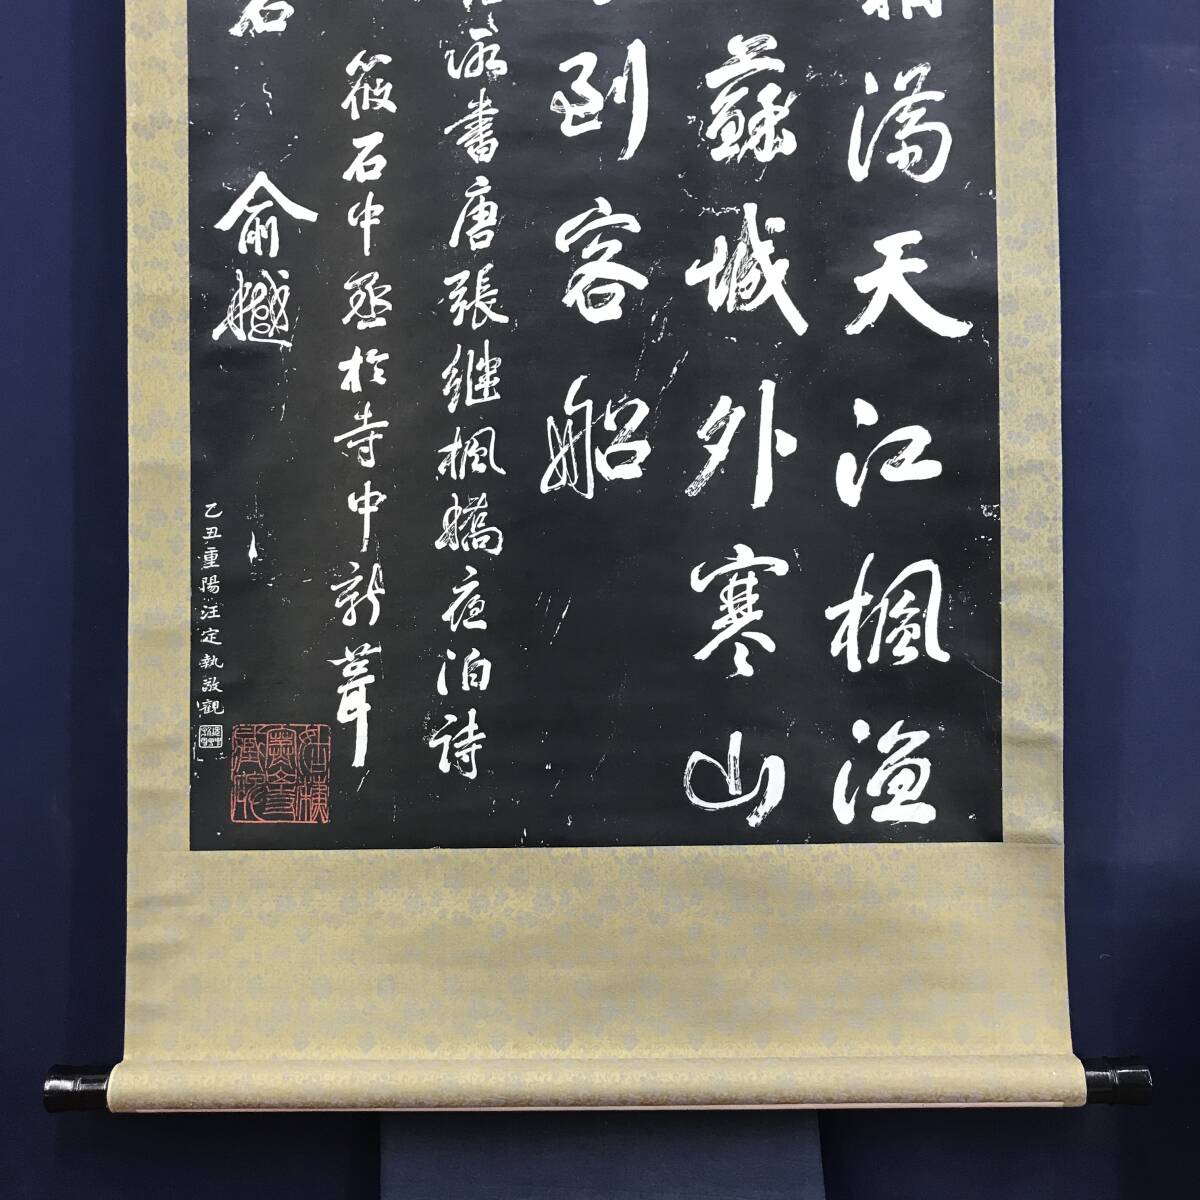 滿天江楓漁
蘇城外寒山
到客船
所書唐張繼楓橋夜泊詩
筱石中丞於寺中新葺
石 俞樾
乙丑重陽汪定執敬觀